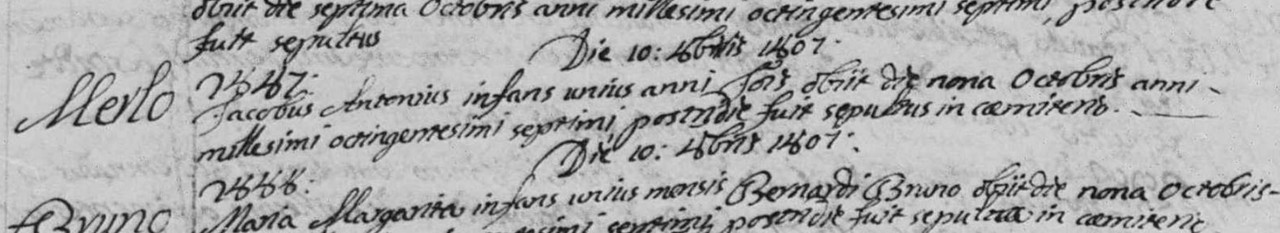 obiit die septima Octobris anni millesimi octingentesimi septimi, postridie
fuit sepultus
Die 10: 8bris 1807.
Merlo
Jacobus Antonius infans unius anni obiit die nona Octobris anni
millesimi octingentesimi septimi postridie fuit sepultus in cœmiterio.
Die 10: 8bris 1807.
Bruno
Maria Margarita infans unius mensis Bernardi Bruno obiit die nona Octobris
septimi postridie fuit sepulta in cœmiterio